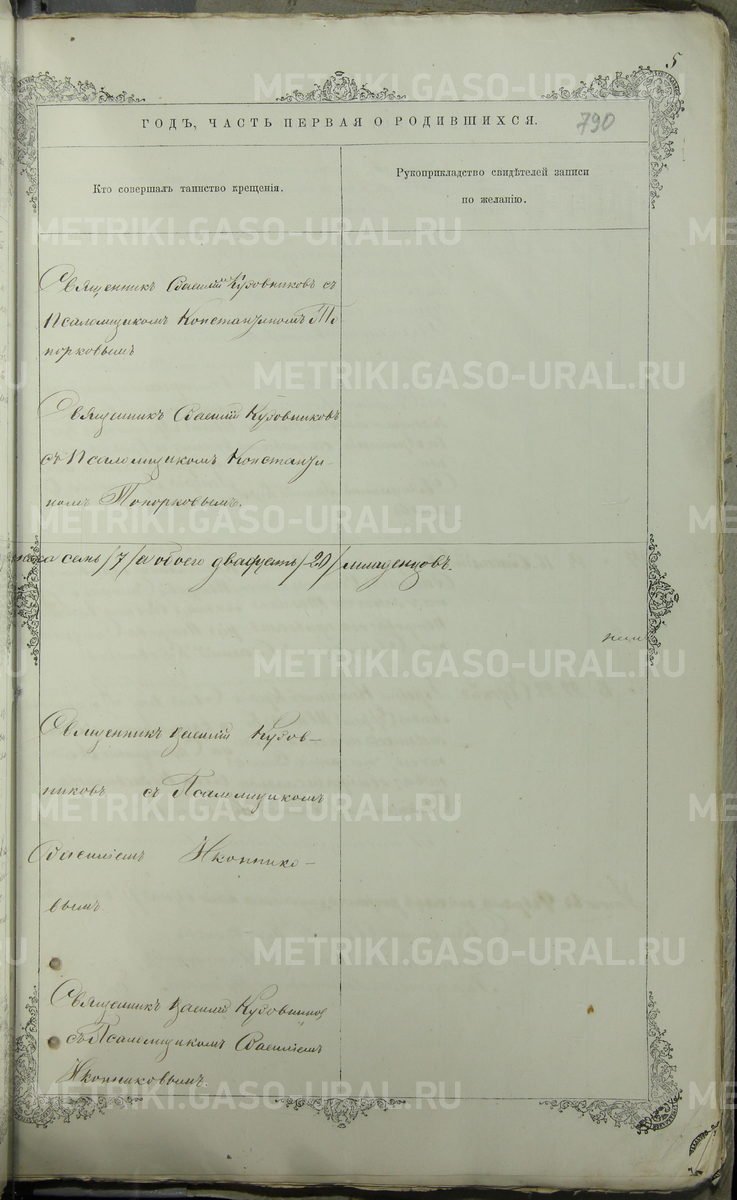 5
ГОДЪ, ЧАСТЬ ПЕРВАЯ О РОДИВШИХСЯ.
790
Кто совершалъ таинство крещенія.
Рукоприкладство свидѣтелей записи
по желанію.
Священникъ Василій Кузовниковъ съ
Псаломщикомъ Константиномъ То
порковымъ
Священникъ Василій Кузовниковъ
съ Псаломщикомъ Константи-
номъ Топорковымъ.
семь /7/ а обоего двадцать /20/ младенцовъ.
Священникъ Василій Кузов-
никовъ съ Псаломщикомъ
Василіемъ Иконнико-
вымъ
Священникъ Василій Кузовников
съ Псаломщикомъ Василіемъ
Иконниковымъ.
METRIKI.GASO-URAL.RU